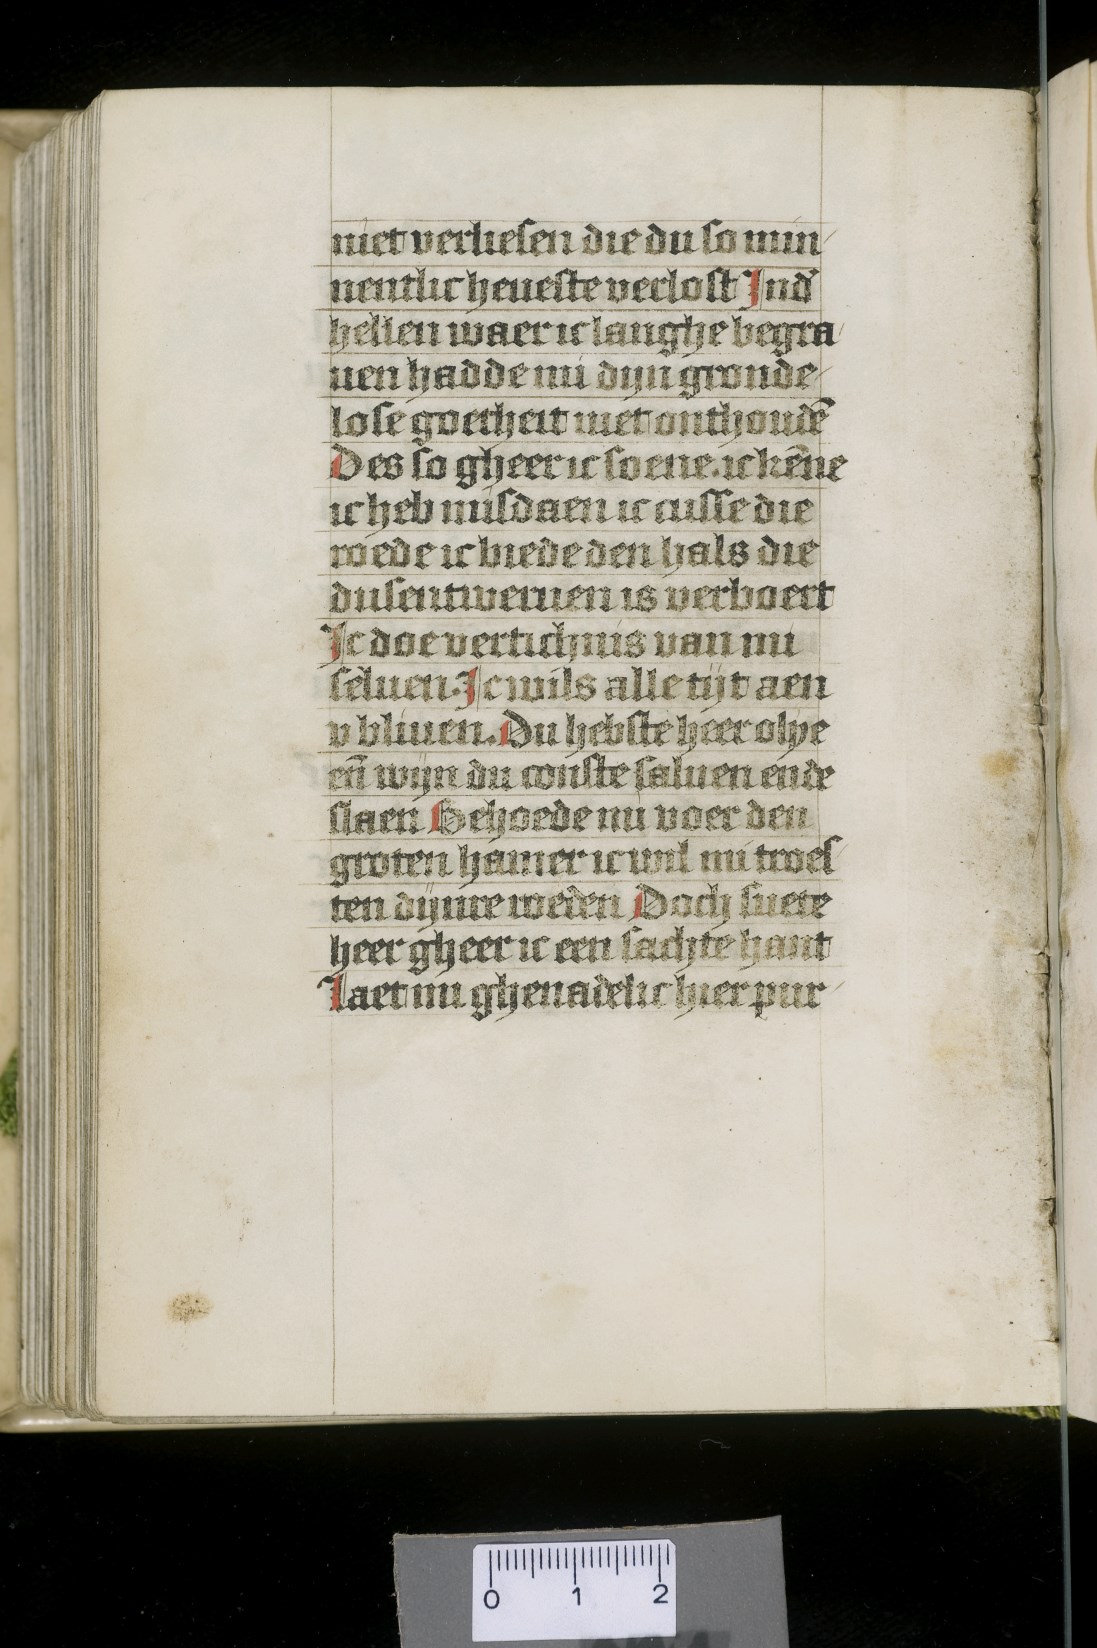 niet verliesen die du so min-
nentlic heueste verlost Ind'
hellen waer ic langhe begra
uen hadde mi dijn gronde-
lose goetheit niet onthoudē
Des so gheer ic soene. ic kēne
ic heb misdaen ic cusse die
roede ic biede den hals die
dusentweruen is verboert
Ic doe vertichnis van mi
seluen. Ic wils alle tijt aen
v bliuen. Du hebste heer olye
eñ wijn du conste saluen ende
slaen Behoede mi voer den
groten hamer ic wil mi troes
ten dijnre roeden Doch suete
heer gheer ic een sachte hant
laet mi ghenadelic hier pur-
0 1 2